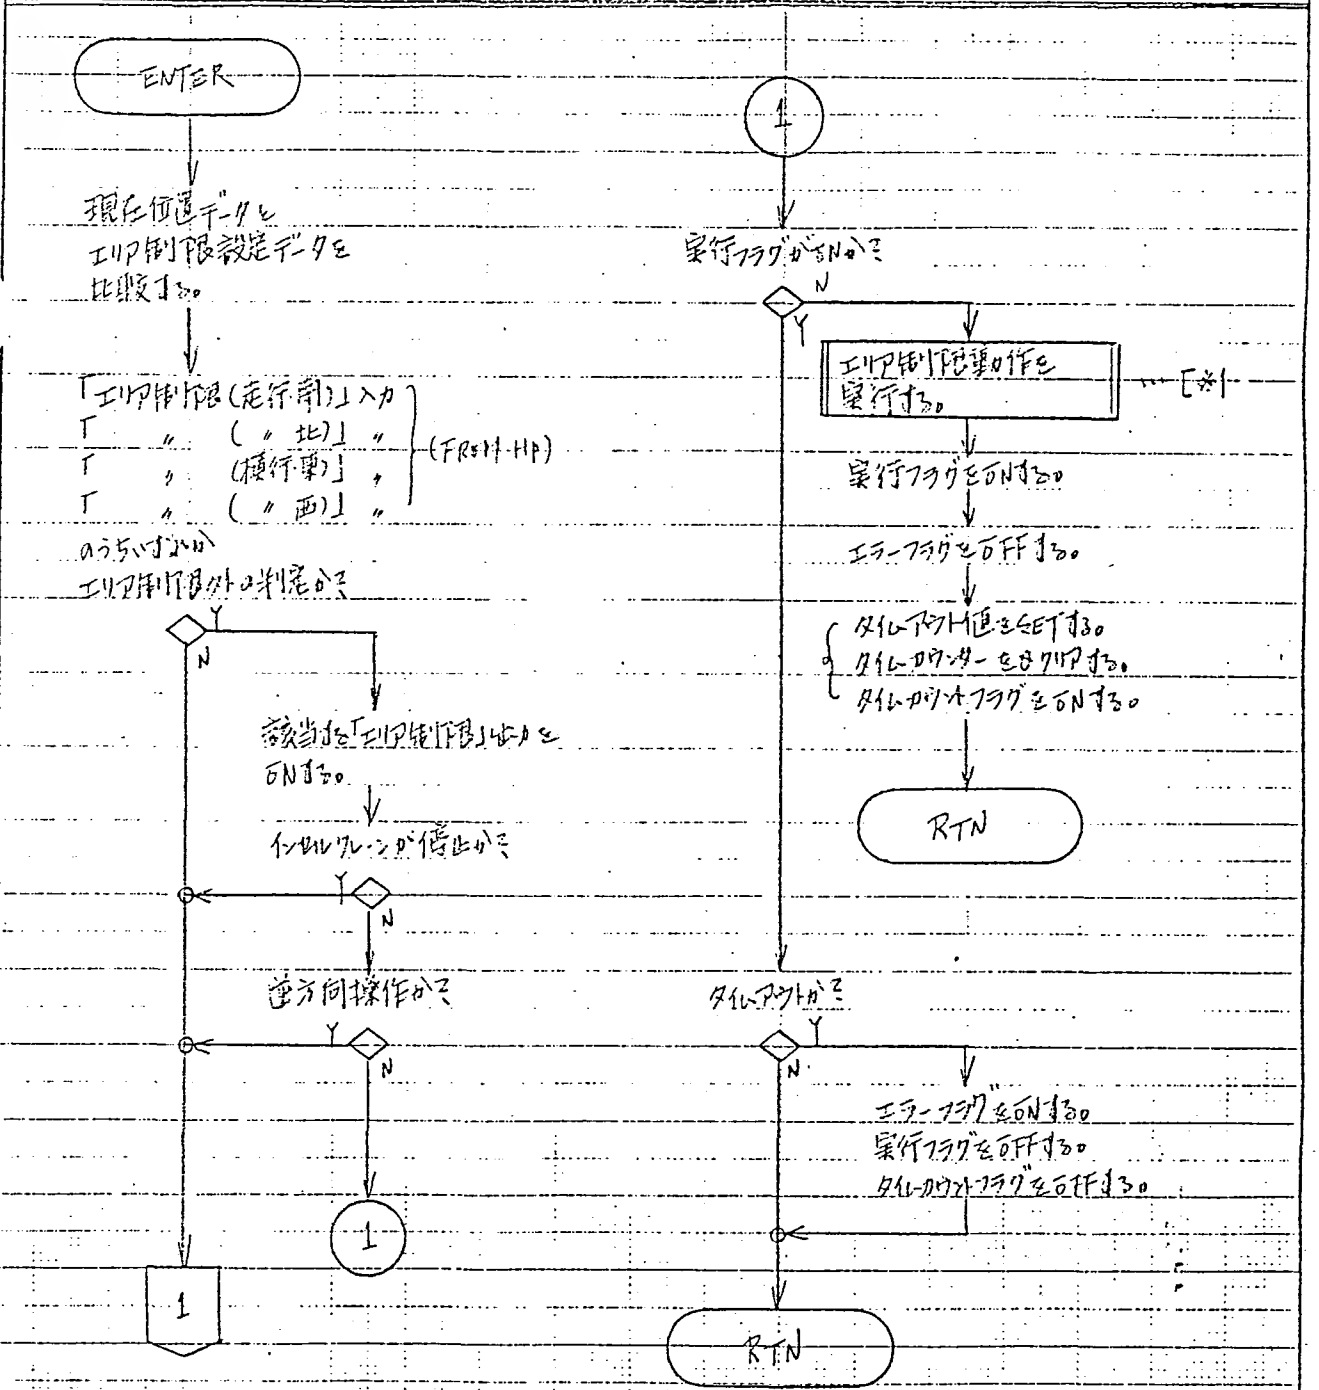 ENTER
現在位置データと
エリア制限設定データを
比較する。
「エリア制限(走行.南)」入力
「 〃 (〃 北)」 〃
「 〃 (横行.東)」 〃
「 〃 (〃 西)」 〃
(FROM-HP)
のうちいずれか
エリア制限外の判定か?
Y
N
該当する「エリア制限」出力を
ONする。
インセルクレーンが停止か?
Y
N
逆方向操作か?
Y
N
1
1
1
実行フラグがONか?
N
Y
エリア制限動作を
実行する。
… [※1
実行フラグをONする。
エラーフラグをOFFする。
タイムアウト値をSETする。
タイムカウンターを クリアする。
タイムカウントフラグをONする。
RTN
タイムアウトか?
Y
N
エラーフラグをONする。
実行フラグをOFFする。
タイムカウントフラグをOFFする。
RTN